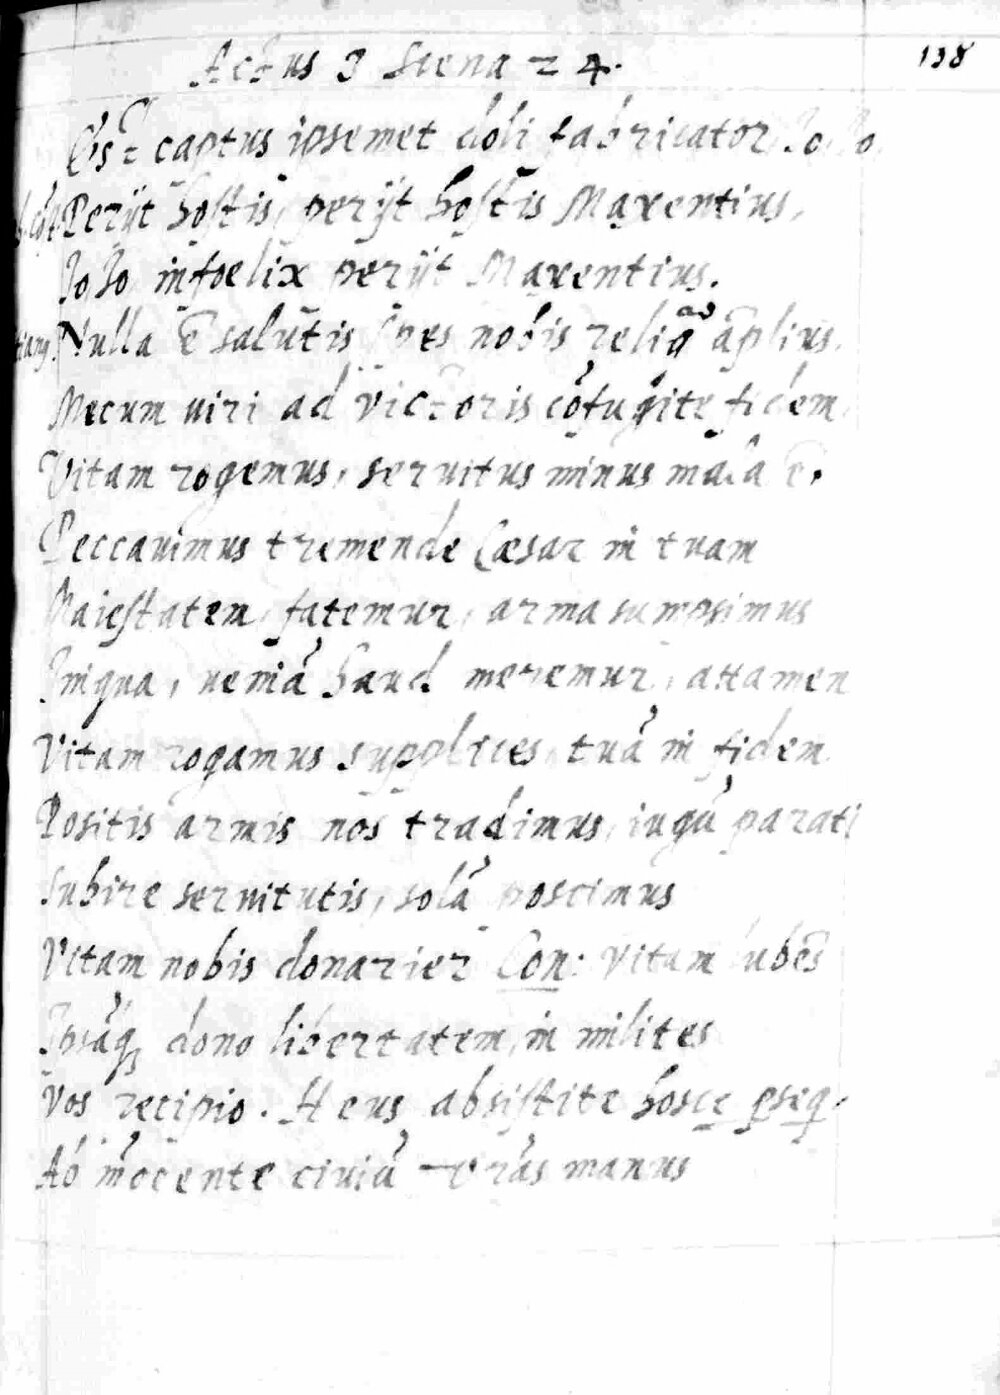 Actus 3 Scena 24. 138
captus ipsemet doli fabricator. Jo Jo.
Perijt hostis, perijt hostis Maxentius,
Jo Jo infoelix perijt Maxentius.
Nulla ē salutis spes nobis reliqa āplius.
Mecum uiri ad victoris cōfugite fidem
Vitam rogemus, seruitus minus mala ē.
Peccauimus tremende Cæsar in tuam
Maiestatem, fatemur, arma sumpsimus
Iniqua, ueniā haud meremur, attamen
Vitam rogamus supplices, tuā in fidem
Positis armis nos tradimus, iugū parati
Subire seruitutis, solā poscimus
Vitam nobis donarier Con: Vitam lubēs
Ipsāq; dono libertatem, in milites
Vos recipio. Heus absistite hosce ꝑseq.
Ab īnocente ciuiū vr̄as manus